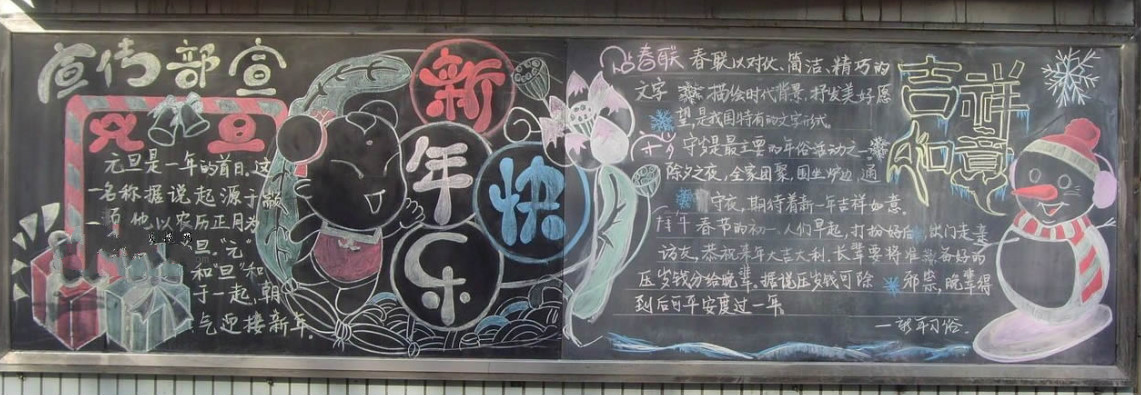 宣传部宣
元旦
元旦是一年的首日,这
一名称据说起源于颛
顼,他以农历正月为
旦."元"
和"旦"和
于一起,朝
气迎接新年.
新
年
快
乐
春联 春联以对仗、简洁、精巧的
文字 描绘时代背景,抒发美好愿
望,是我国特有的文字形式.
守岁是最主要的年俗活动之一.
除夕之夜,全家团聚,围坐炉边,通
守夜,期待着新一年吉祥如意.
拜年 春节的初一,人们早起,打扮好后 出门走亲
访友,恭祝来年大吉大利,长辈要将准备好的
压岁钱分给晚辈,据说压岁钱可除 邪祟,晚辈得
到后可平安度过一年.
—新年习俗.
吉祥
如意